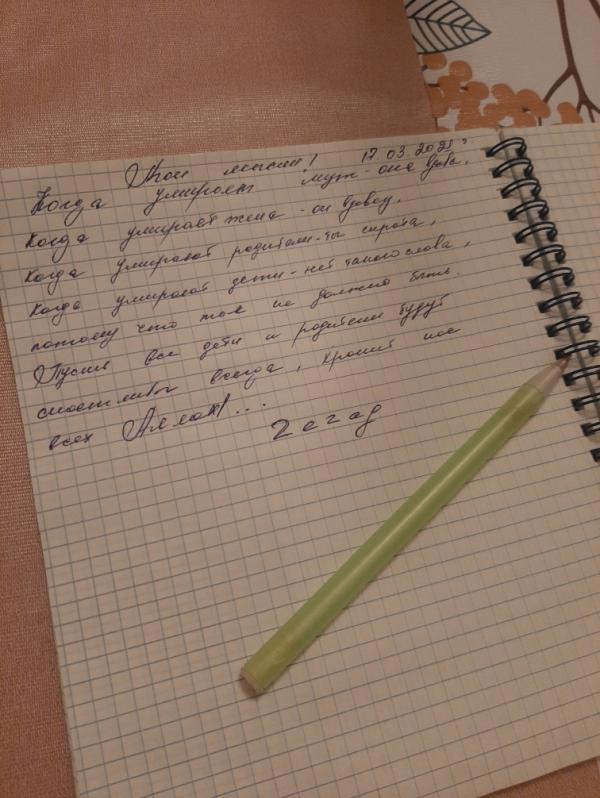 Твои мысли! 17.03.2025г
Когда умирает муж - она вдова.
Когда умирает жена - он вдовец.
Когда умирают родители - ты сирота,
Когда умирают дети - нет такого слова,
потому что так не должно быть
Пусть все дети и родители будут
счастливы всегда, хранит нас
всех Аллах!...